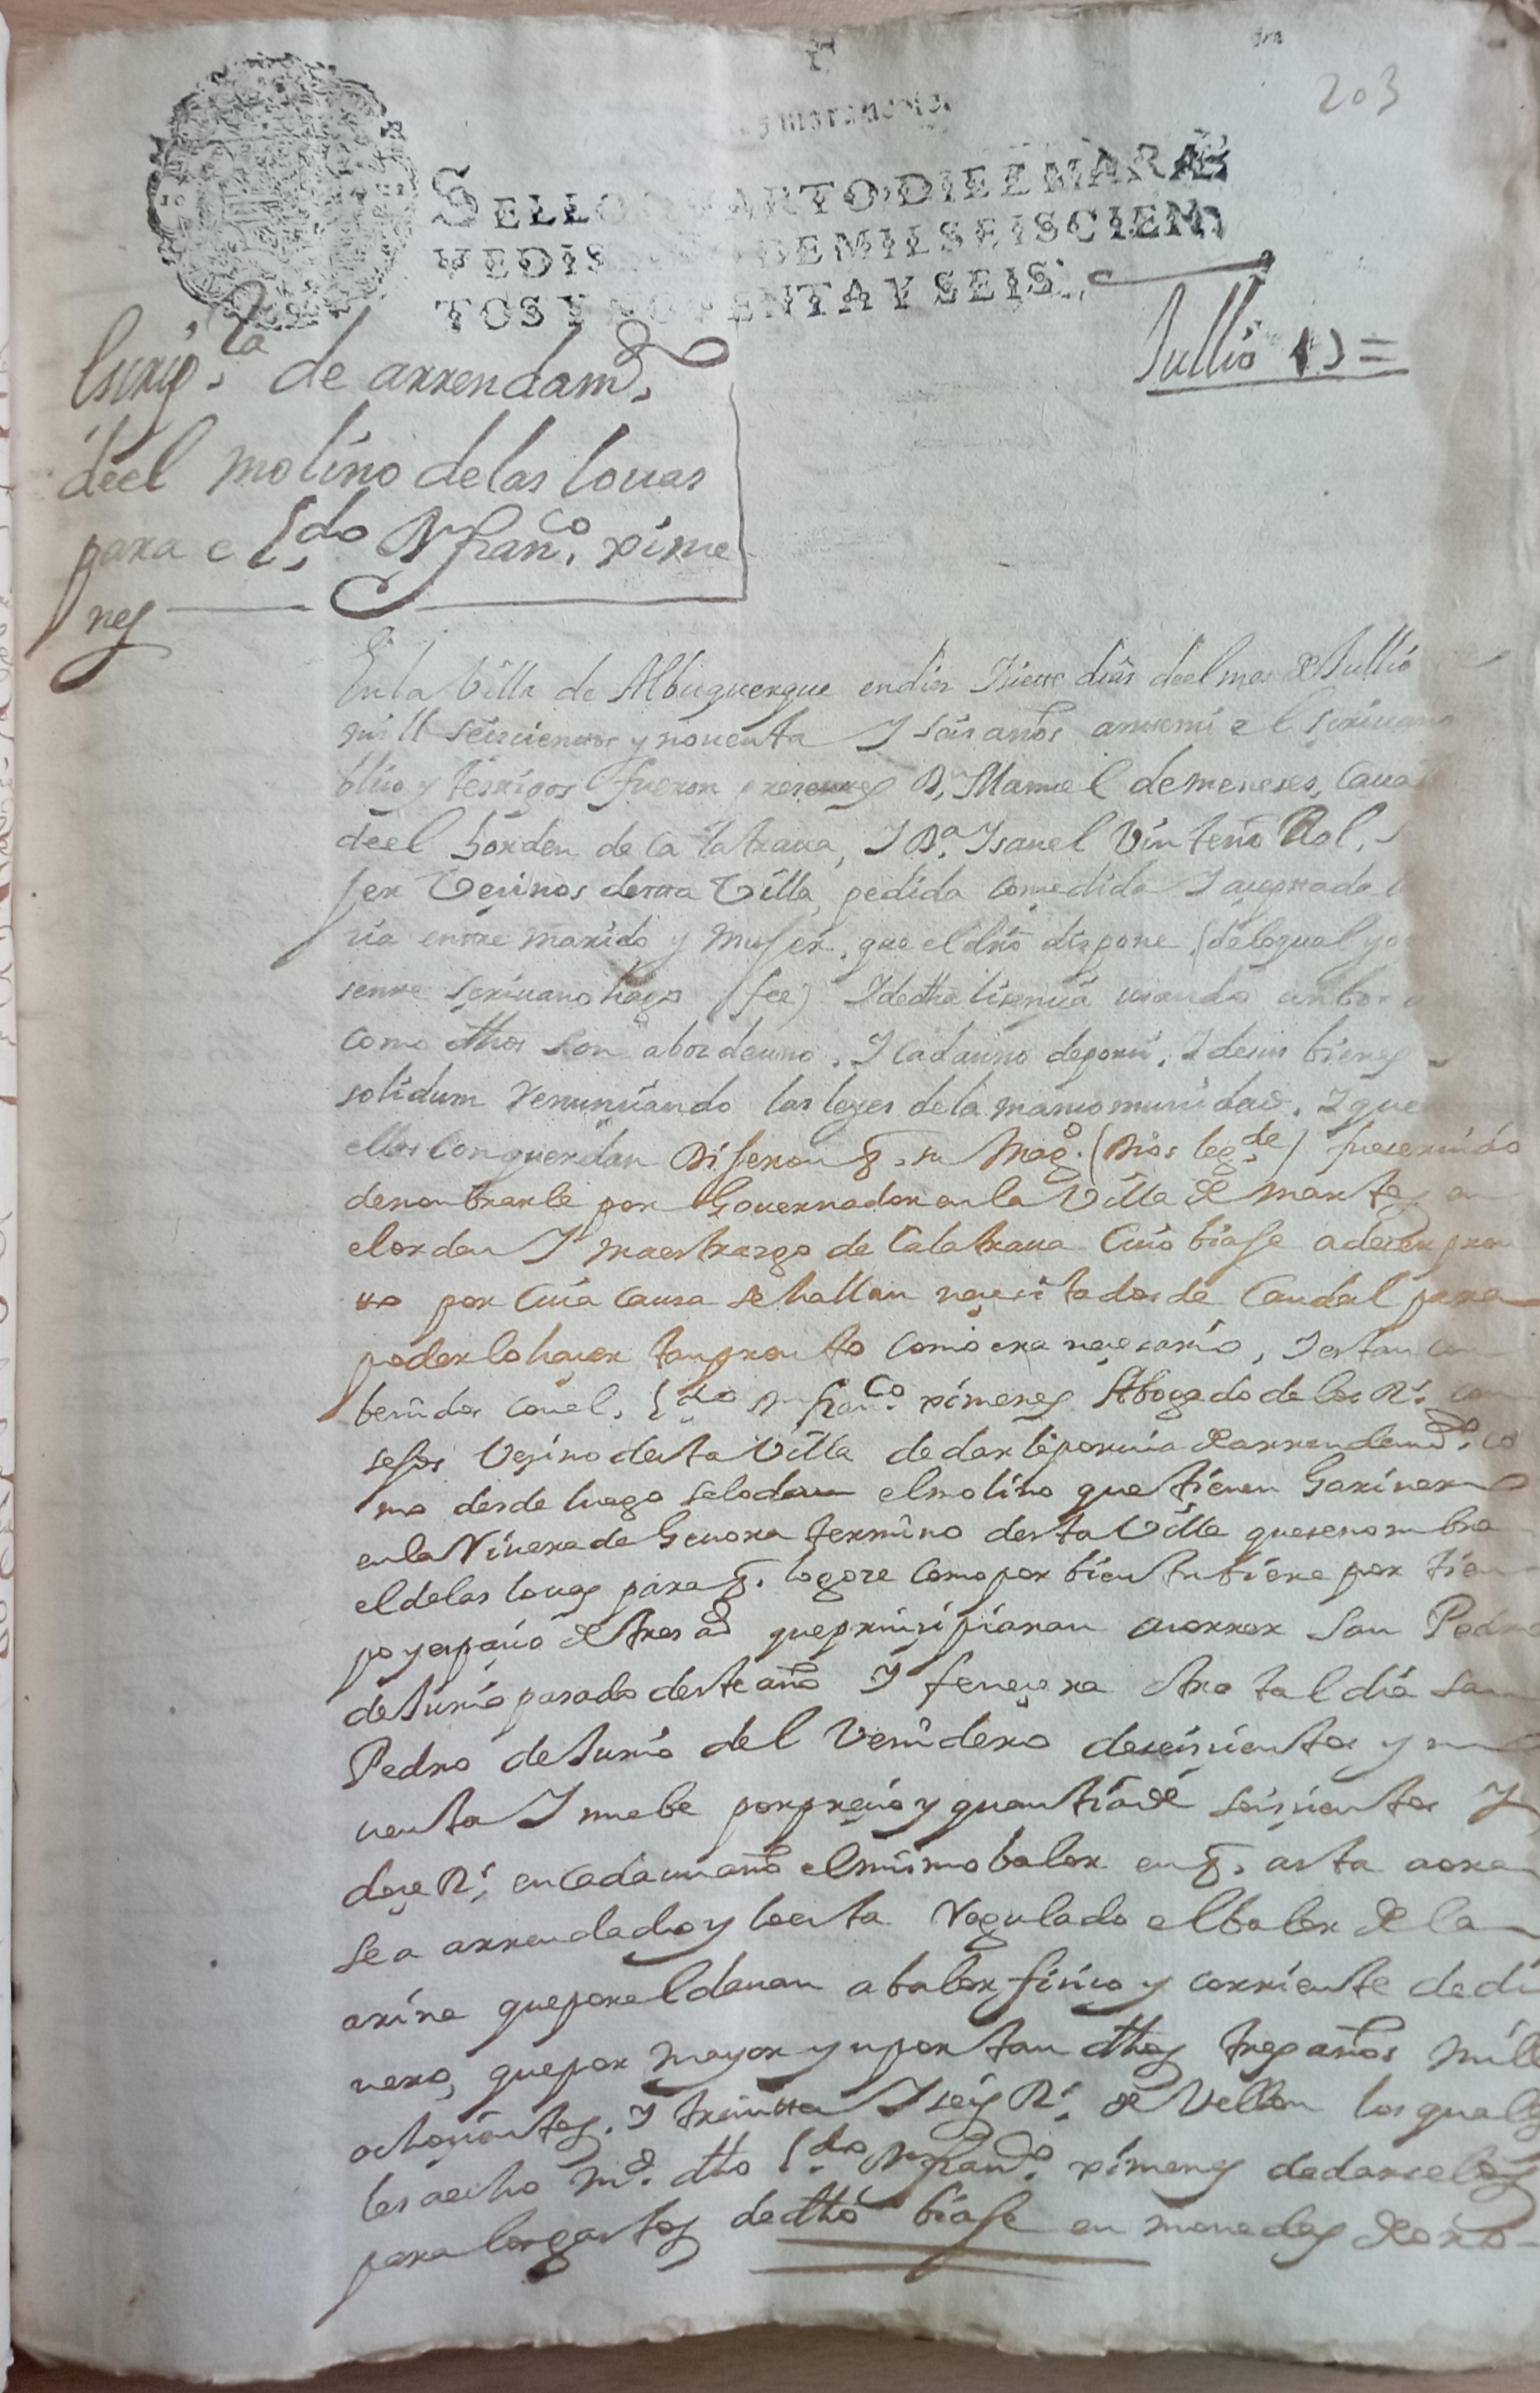 203
SELLO QVARTO, DIEZ MARA
VEDIS DE MIL SEISCIEN
TOS Y NOVENTA Y SEIS.
Jullio 17=
Escrip.ra de arrendam.to
deel molino de las louas
para e l.do Dn fran.co xime
nes
En la Villa de Alburquerque en dies Isiette dias deel mes de Jullio
mill seiscientos y nouenta I seis años antemi e l scriuano
blico y testigos fueron presentes Dn Manuel de meneses, Caua
deel horden de Calatraua, I Da. Isauel Vinteño Rol,
ger Veçinos desta Villa, pedida comçedida I açeptada
cia entre marido y muger, que el dro dispone (de lo qual yo
sente scriuano hago fee) I de dha lisencia usando ambos
como dhos son a boz de uno, I cada uno de por si, I de sus bienes
solidum renunciando las leyes de la mancomunidad, I que
ellos conquerdan Digeron q. su Mag.d (Dios leg.de) fue seruido
de nombrarle por Gouernador en la Villa de martos en
el orden I maestrazgo de Calatraua Cuio biage a de ser pron
to por cuia causa se hallan neçesitados de Caudal para
poderlo haçer tan pronto como era neçesario, I estan con
benidos con el l.do Dn fran.co ximenes Abogado de los Rs. con
sejos Veçino desta Villa de darle por uia de arrendam.to co
mo desde luego se lo dan el molino que tienen Harinero
en la Riuera de Geuora termino desta Villa que se nombra
el de las louas para q. lo goze como por bien tubiere por tiem
po y espaçio de tres ad que prinçipiaran a correr San Pedro
de Junio pasado deste año I feneçera otro tal dia San
Pedro de Junio del Venidero de seisçientos y no
uenta I nuebe por preçio y quantia de seisçientos I
doçe Rs. en cada un año el mismo balor en q. asta aora
se a arrendado y lo esta Regulado el balor de la
arina que por el dauan a balor fisico y corriente de di
nero, que por mayor ynportan dhos tres años mill
ochoçientos, I treintta I seis Rs. de Vellon los quales
les a echo md. dho l.do Dn fran.co ximenes de darselos
para los gastos de dho biage en monedas de oro